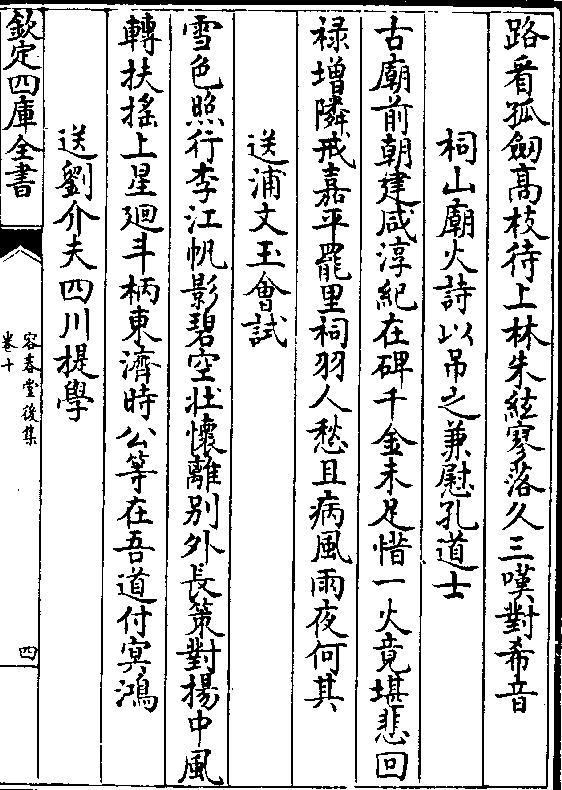 路看孤劒高枝待上林朱絃寥落久三嘆對希音
祠山廟火詩以吊之兼慰孔道士
古廟前朝建咸淳紀在碑千金未足惜一火竟堪悲回
祿增隣戒嘉平罷里祠羽人愁且病風雨夜何其
送浦文玉會試
雪色照行李江帆影碧空壯懷離别外長策對揚中風
轉扶搖上星廻斗柄東濟時公等在吾道付冥鴻
送劉介夫四川提學
欽定四庫全書
容春堂後集
卷十
四